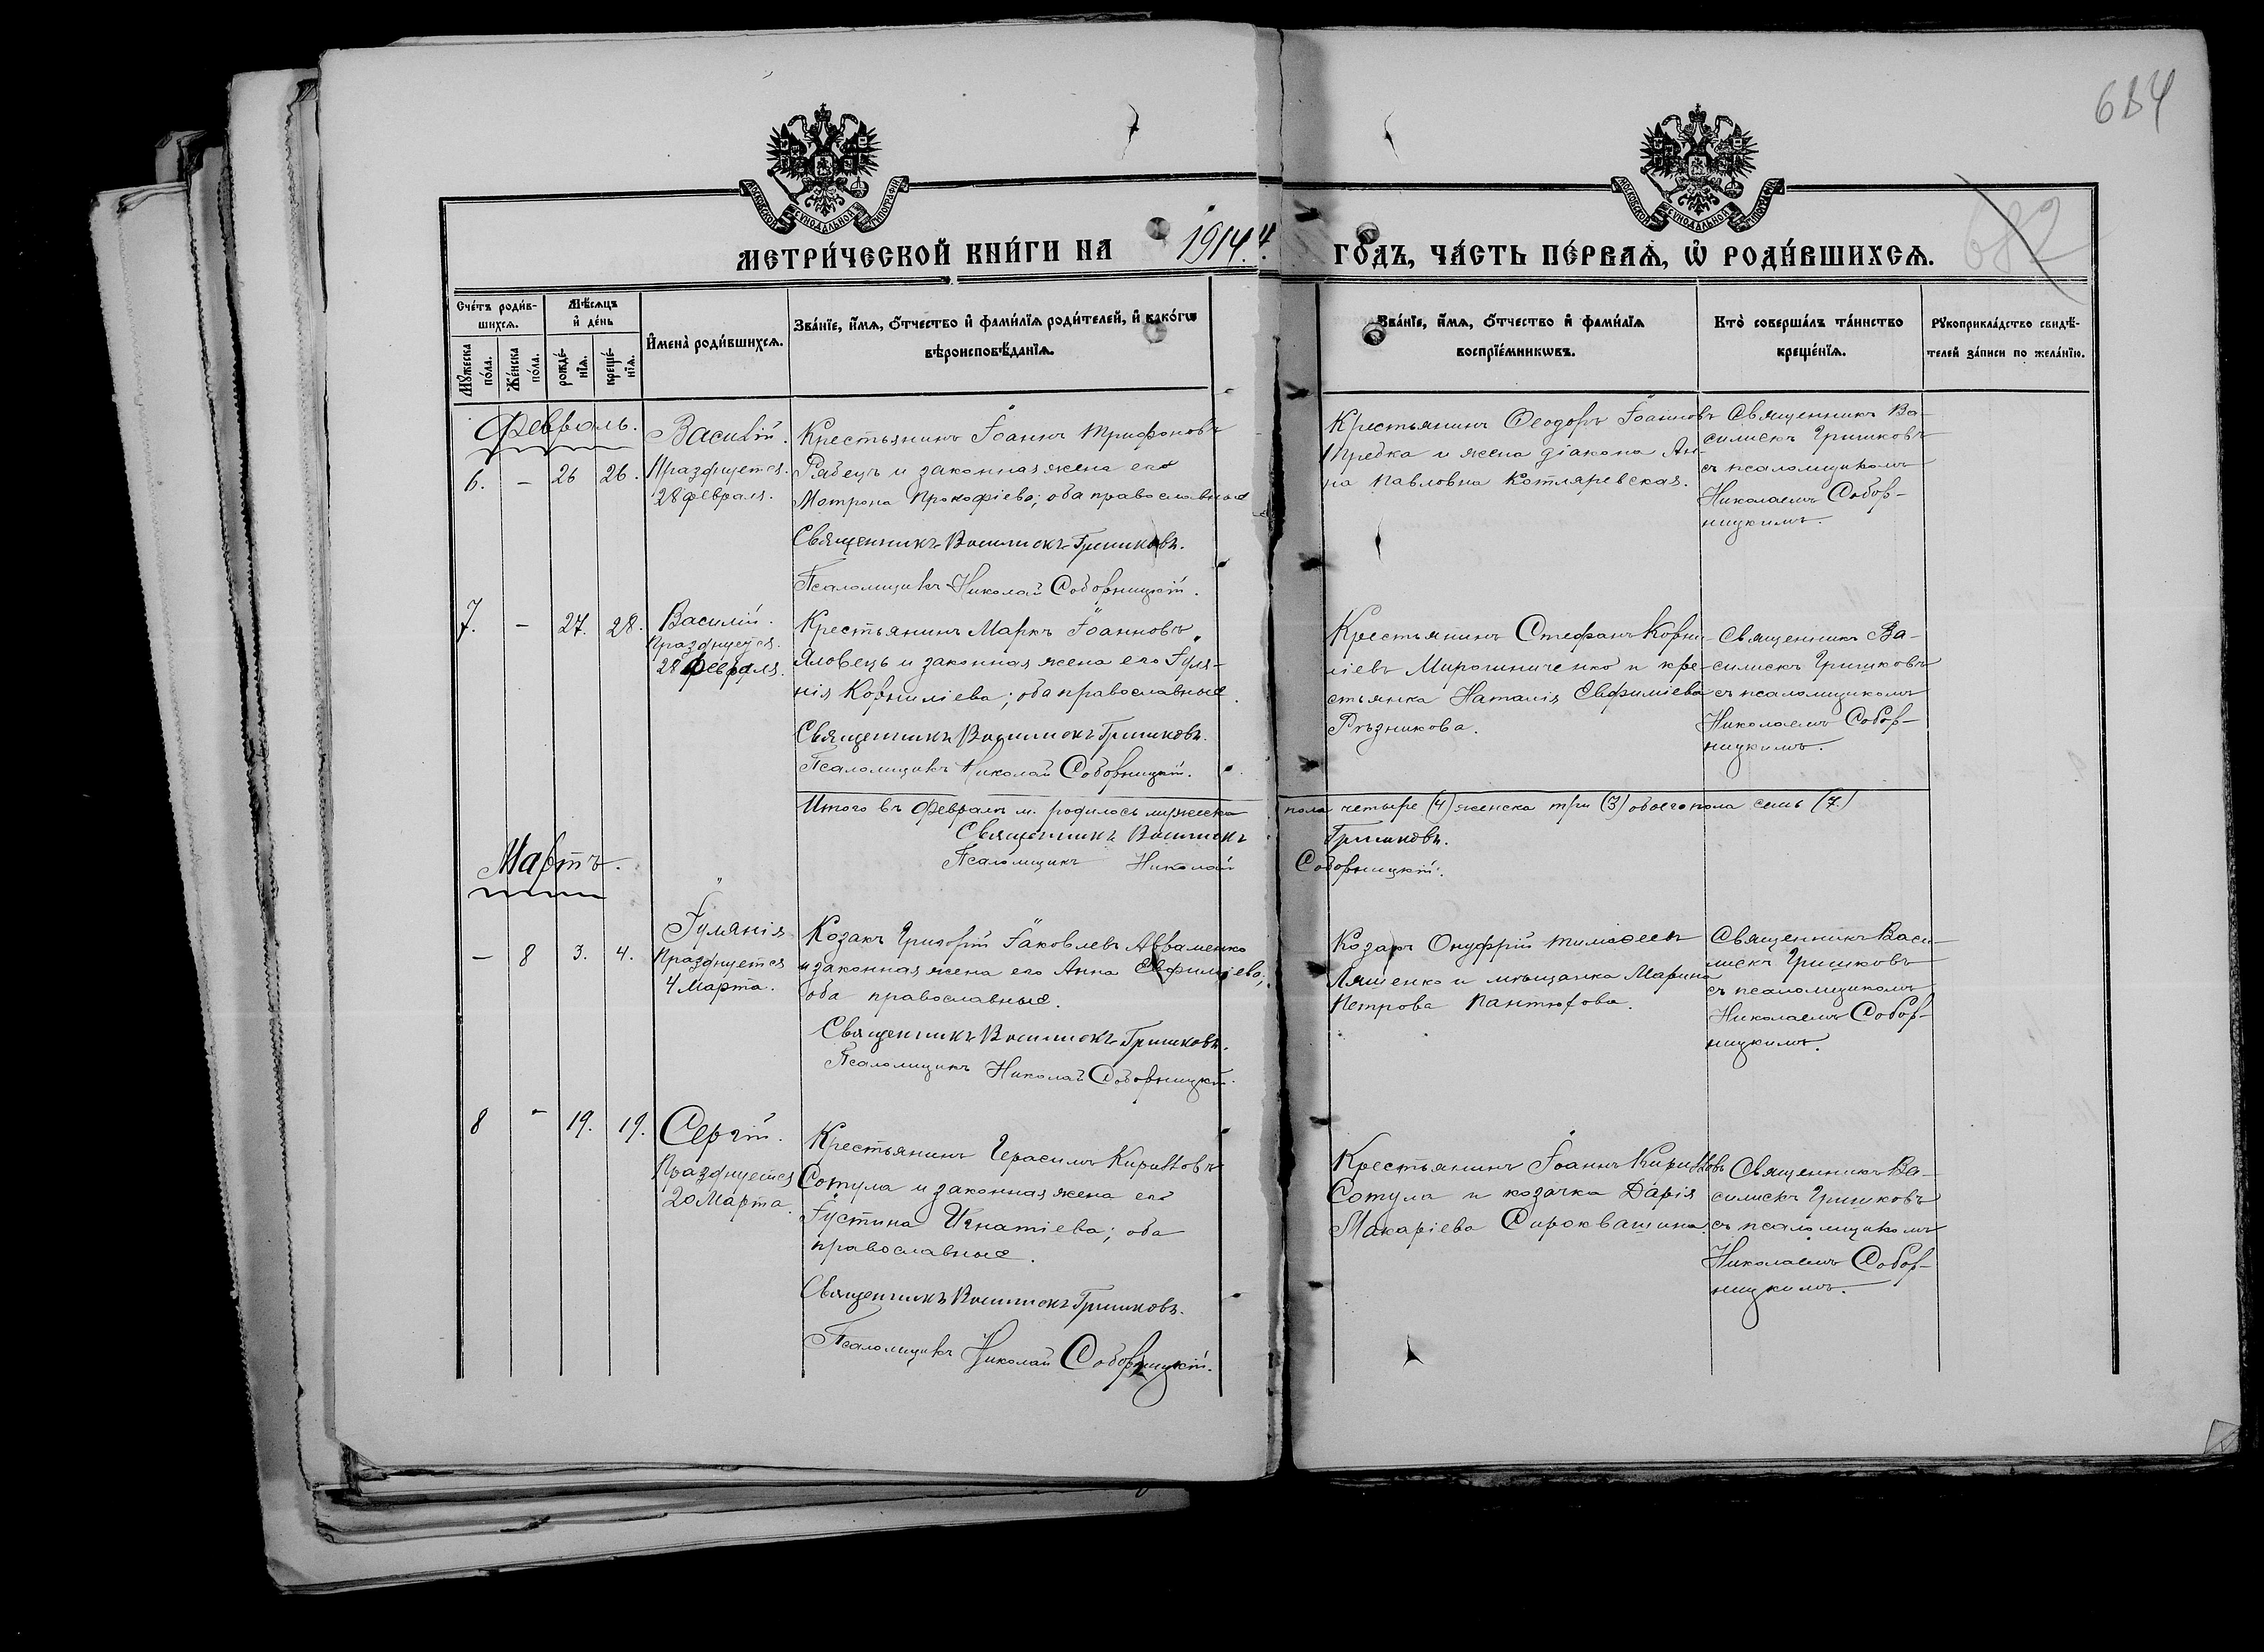 684
682
МОСКОВСКОЙ СѴНОДАЛЬНОЙ ТИПОГРАФІИ
МОСКОВСКОЙ СѴНОДАЛЬНОЙ ТИПОГРАФІИ
МЕТРИ́ЧЕСКОЙ КНИ́ГИ НА 1914. 4 ГО́ДЪ, ЧА́СТЬ ПЕ́РВАѦ, Ѡ҆ РОДИ́ВШИХСѦ.
Сче́тъ роди́в-
шихсѧ.
Мѣ́сѧцъ
и҆ де́нь
Мꙋ́жеска
по́ла.
Же́нска
по́ла.
рожде́-
нїѧ.
креще́-
нїѧ.
И҆мена̀ роди́вшихсѧ.
Зва́нїе, и҆́мѧ, ѻ҆́тчество и҆ фами́лїѧ роди́телей, и҆ како́гѡ
вѣроисповѣ́данїѧ.
Зва́нїе, и҆́мѧ, ѻ҆́тчество и҆ фами́лїѧ
воспрїе́мникѡвъ.
Кто̀ соверша́лъ та́инство
креще́нїѧ.
Рꙋкоприкла́дство свидѣ́-
телей за́писи по жела́нїю.
Февраль.
6. – 26 26.
Василій.
Празднуется
28 февраля.
Крестьянинъ Іоаннъ Трифоновъ
Рабецъ и законная жена его
Матрона Прокофіева; оба православные
Священникъ Василискъ Гришковъ.
Псаломщикъ Николай Соборницкій.
Крестьянинъ Ѳеодоръ Іоанновъ
Предка и жена діакона Ан-
на Павловна Котляревская.
Священникъ Ва-
силискъ Гришковъ
съ псаломщикомъ
Николаемъ Собор-
ницкимъ.
7. – 27. 28.
Василій.
Празднуется
28 февраля.
Крестьянинъ Маркъ Іоанновъ
Яловецъ и законная жена его Іулі-
нія Корниліева; оба православные.
Священникъ Василискъ Гришковъ.
Псаломщикъ Николай Соборницкій.
Крестьянинъ Стефанъ Корни-
ліевъ Мирошниченко и кре-
стьянка Наталія Евфиміева
Рѣзникова.
Священникъ Ва-
силискъ Гришковъ
съ псаломщикомъ
Николаемъ Собор-
ницкимъ.
Итого въ февралѣ м. родилось мужеска пола четыре (4) женска три (3) обоего пола семь (7.)
Священникъ Василискъ Гришковъ.
Псаломщикъ Николай Соборницкій.
Мартъ.
– 8 3. 4.
Іуліанія
Празднуется
4 Марта.
Козакъ Григорій Іаковлевъ Авраменко
и законная жена его Анна Евфиміева;
оба православные.
Священникъ Василискъ Гришковъ.
Псаломщикъ Николай Соборницкій.
Козакъ Онуфрій Тимоѳеевъ
Ляшенко и мѣщанка Марина
Петрова Пантюхова.
Священникъ Васи-
лискъ Гришковъ
съ псаломщикомъ
Николаемъ Собор-
ницкимъ.
8 – 19. 19.
Сергій.
Празднуется
20 Марта.
Крестьянинъ Герасимъ Кирилловъ
Сотула и законная жена его
Іустина Игнатіева; оба
православные.
Священникъ Василискъ Гришковъ.
Псаломщикъ Николай Соборницкій.
Крестьянинъ Іоаннъ Кирилловъ
Сотула и козачка Дарія
Макаріева Сироквашина.
Священникъ Ва-
силискъ Гришковъ
съ псаломщикомъ
Николаемъ Собор-
ницкимъ.